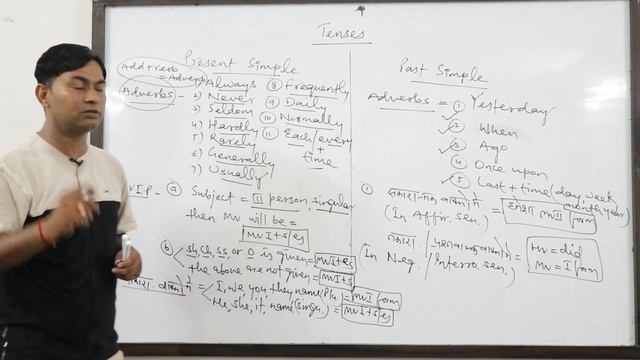 Tenses
Present Simple
Add + verb
= Adverb
Adverbs -
1) Always
2) Never
3) Seldom
4) Hardly
5) Rarely
6) Generally
7) Usually
8 Frequently
9 Daily
10 Normally
11 Each/every
+
time
V.I.P - a Subject = III person, singular
then MV will be =
MV I + s/es
b sh, ch, ss, or O is given = MV I + es
the above are not given = MV I + s
I, we, you they name/Plu. = MV I form
He, she, it, name (singu.) = MV I + s/es
Past Simple
Adverbs = 1 Yesterday
2 When
3 Ago
4 Once upon
5 Last + time (day, week
month, year)
(In Affir. sen.) = हमेशा MV II form
नकारा.
In Neg. / Interro. sen.)
HV = did
MV = I form